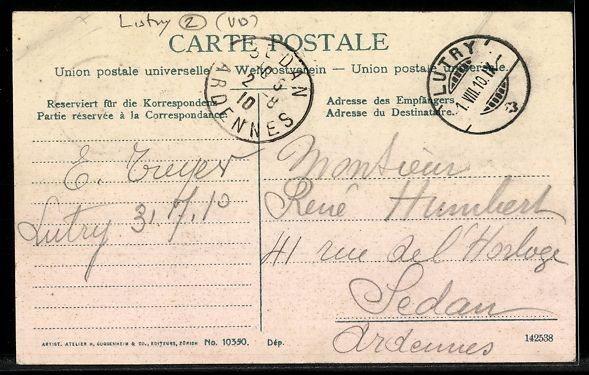 Lutry (2) (VD)
CARTE POSTALE
Union postale universelle — Weltpostverein — Union postale universelle.
SEDAN
2 8
10
ARDENNES
LUTRY
1.VIII.10.IX
Reserviert für die Korrespondenz
Partie réservée à la Correspondance
Adresse des Empfängers.
Adresse du Destinataire.
E.
Lutry 3.17.10
Monsieur
René Humbert
41 rue de l'Horloge
Sedan
Ardennes
ARTIST. ATELIER H. GUGGENHEIM & CO., EDITEURS, ZÜRICH No. 10350. Dép.
142538